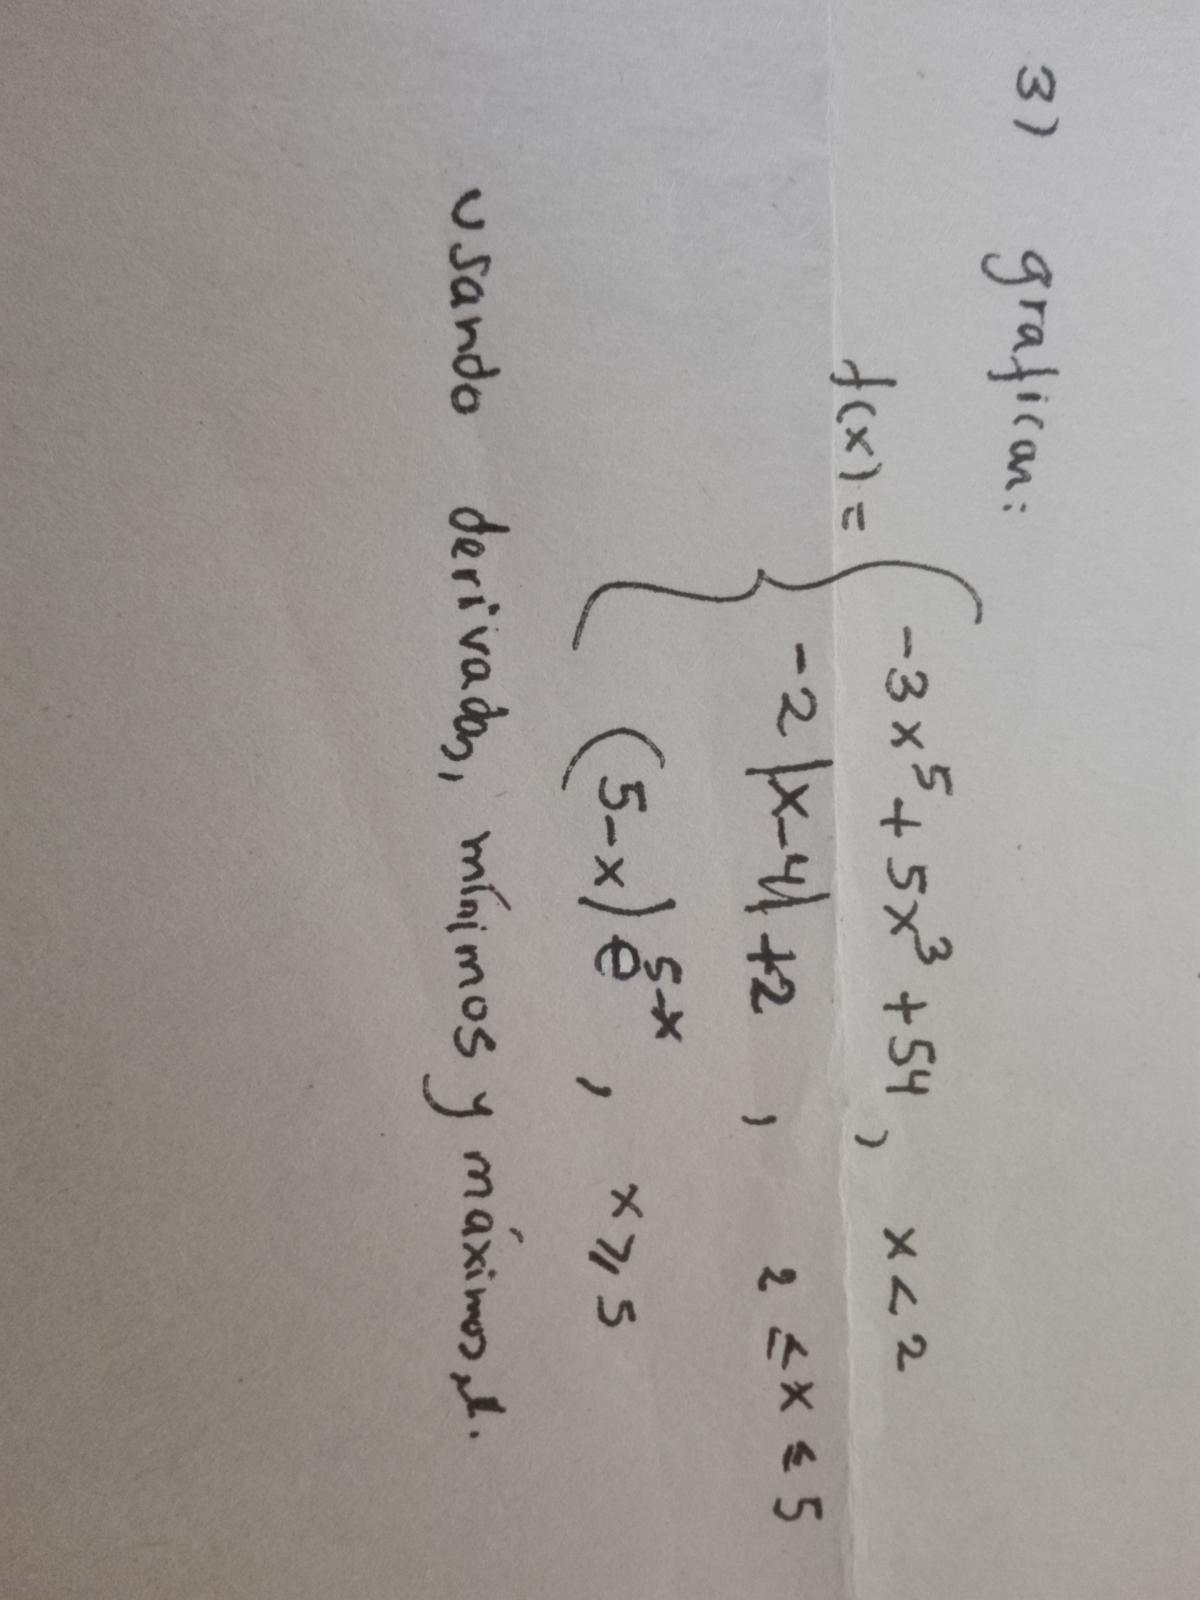 3) grafican:
f(x) = { -3x⁵ + 5x³ + 54 , x < 2
-2|x-4| +2 , 2 ≤ x ≤ 5
(5-x) e^(5-x) , x ⩾ 5
usando derivadas, mínimos y máximos,